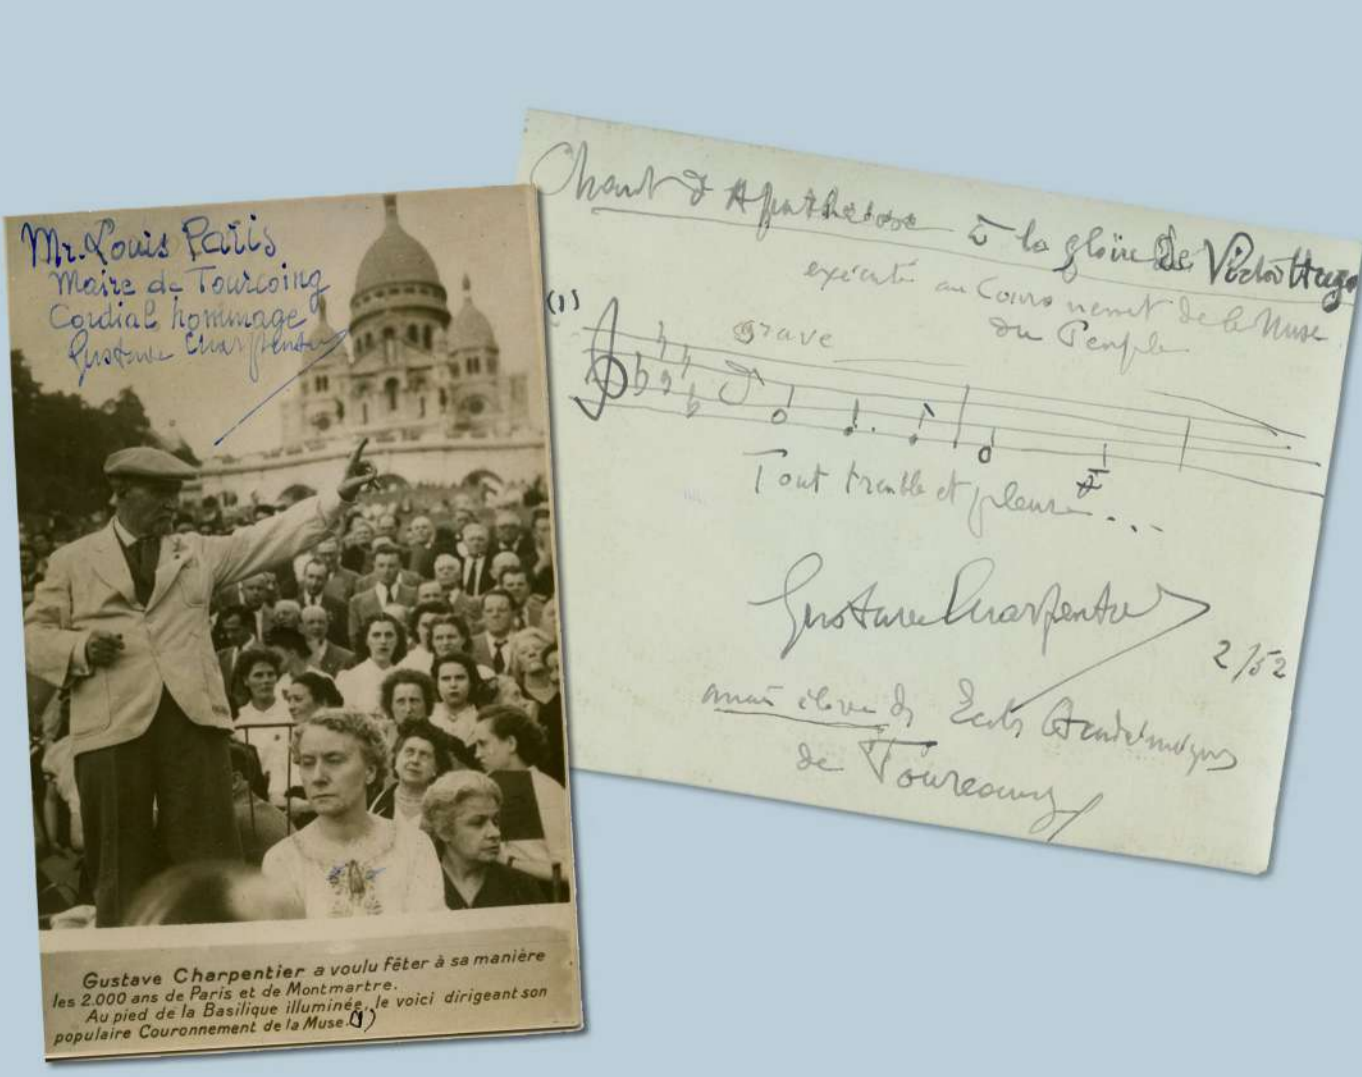 Mr. Louis Paris
Maire de Tourcoing
Cordial hommage
Gustave Charpentier
Gustave Charpentier a voulu fêter à sa manière
les 2.000 ans de Paris et de Montmartre.
Au pied de la Basilique illuminée, le voici dirigeant son
populaire Couronnement de la Muse. (1)
Chant d'Apothéose à la gloire de Victor Hugo
exécuté au Couronnement de la Muse
du Peuple
(1)
grave
Tout tremble et pleure...
Gustave Charpentier
2/52
élève des Ecoles Académiques
de Tourcoing